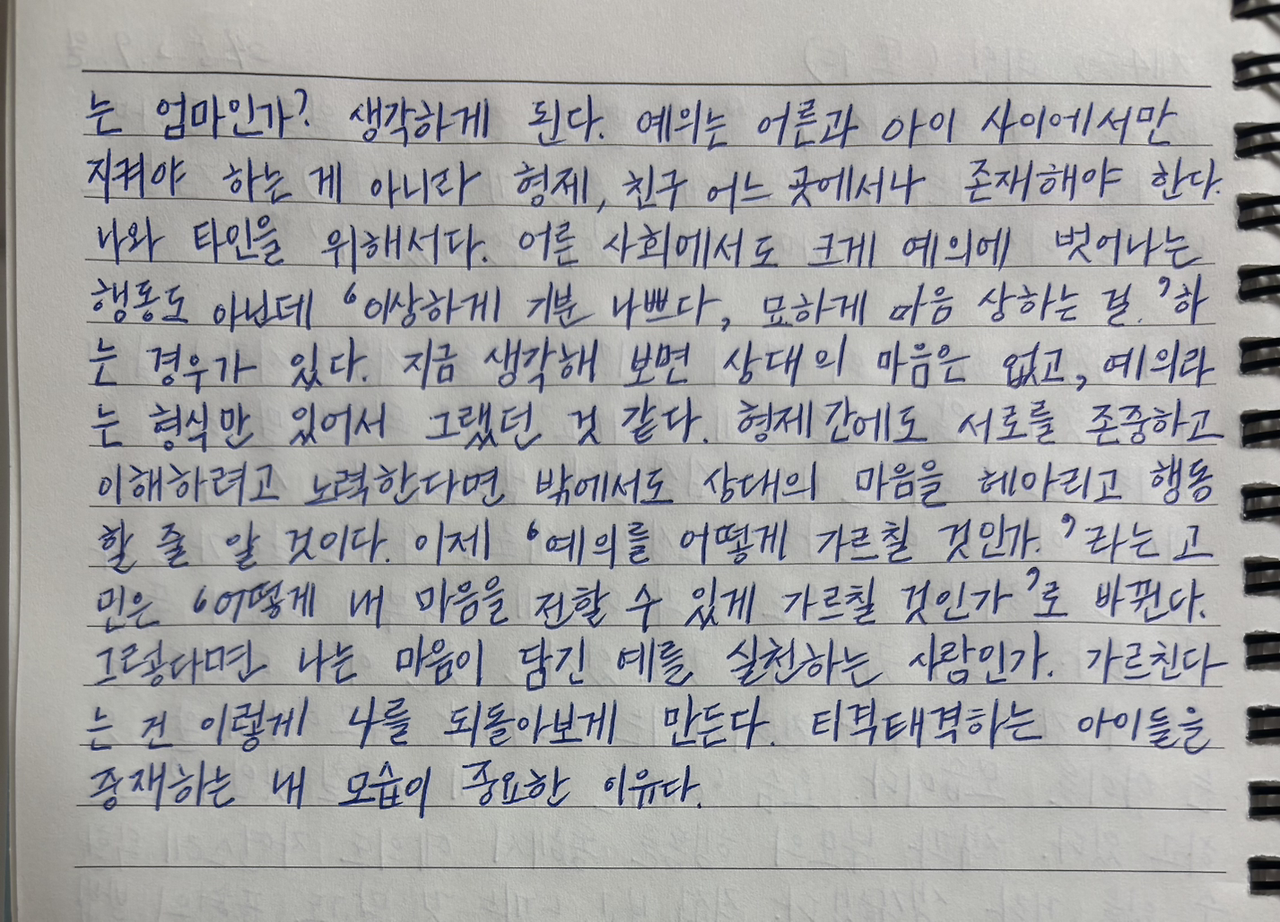 는 엄마인가? 생각하게 된다. 예의는 어른과 아이 사이에서만
지켜야 하는 게 아니라 형제, 친구 어느 곳에서나 존재해야 한다.
나와 타인을 위해서다. 어른 사회에서도 크게 예의에 벗어나는
행동도 아닌데 '이상하게 기분 나쁘다, 묘하게 마음 상하는 걸.'하
는 경우가 있다. 지금 생각해 보면 상대의 마음은 없고, 예의라
는 형식만 있어서 그랬던 것 같다. 형제간에도 서로를 존중하고
이해하려고 노력한다면 밖에서도 상대의 마음을 헤아리고 행동
할 줄 알 것이다. 이제 '예의를 어떻게 가르칠 것인가.'라는 고
민은 '어떻게 내 마음을 전할 수 있게 가르칠 것인가'로 바뀐다.
그렇다면 나는 마음이 담긴 예를 실천하는 사람인가. 가르친다
는 건 이렇게 나를 되돌아보게 만든다. 티격태격하는 아이들을
중재하는 내 모습이 중요한 이유다.